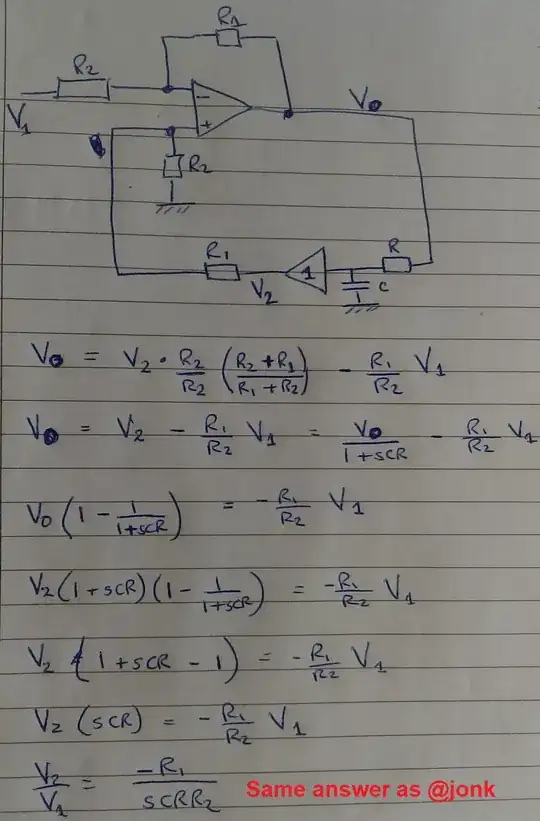 R₁
R₂
V₁
−
+
V₀
R₂
R₁
R
1
V₂
C
V₀ = V₂ · R₂/R₂ ((R₂ + R₁)/(R₁ + R₂)) − R₁/R₂ V₁
V₀ = V₂ − R₁/R₂ V₁ = V₀/(1+SCR) − R₁/R₂ V₁
V₀ (1 − 1/(1+SCR)) = −R₁/R₂ V₁
V₂ (1+SCR) (1 − 1/(1+SCR)) = −R₁/R₂ V₁
V₂ (1+SCR − 1) = −R₁/R₂ V₁
V₂ (SCR) = −R₁/R₂ V₁
V₂/V₁ = −R₁/SCRR₂ Same answer as @jonk